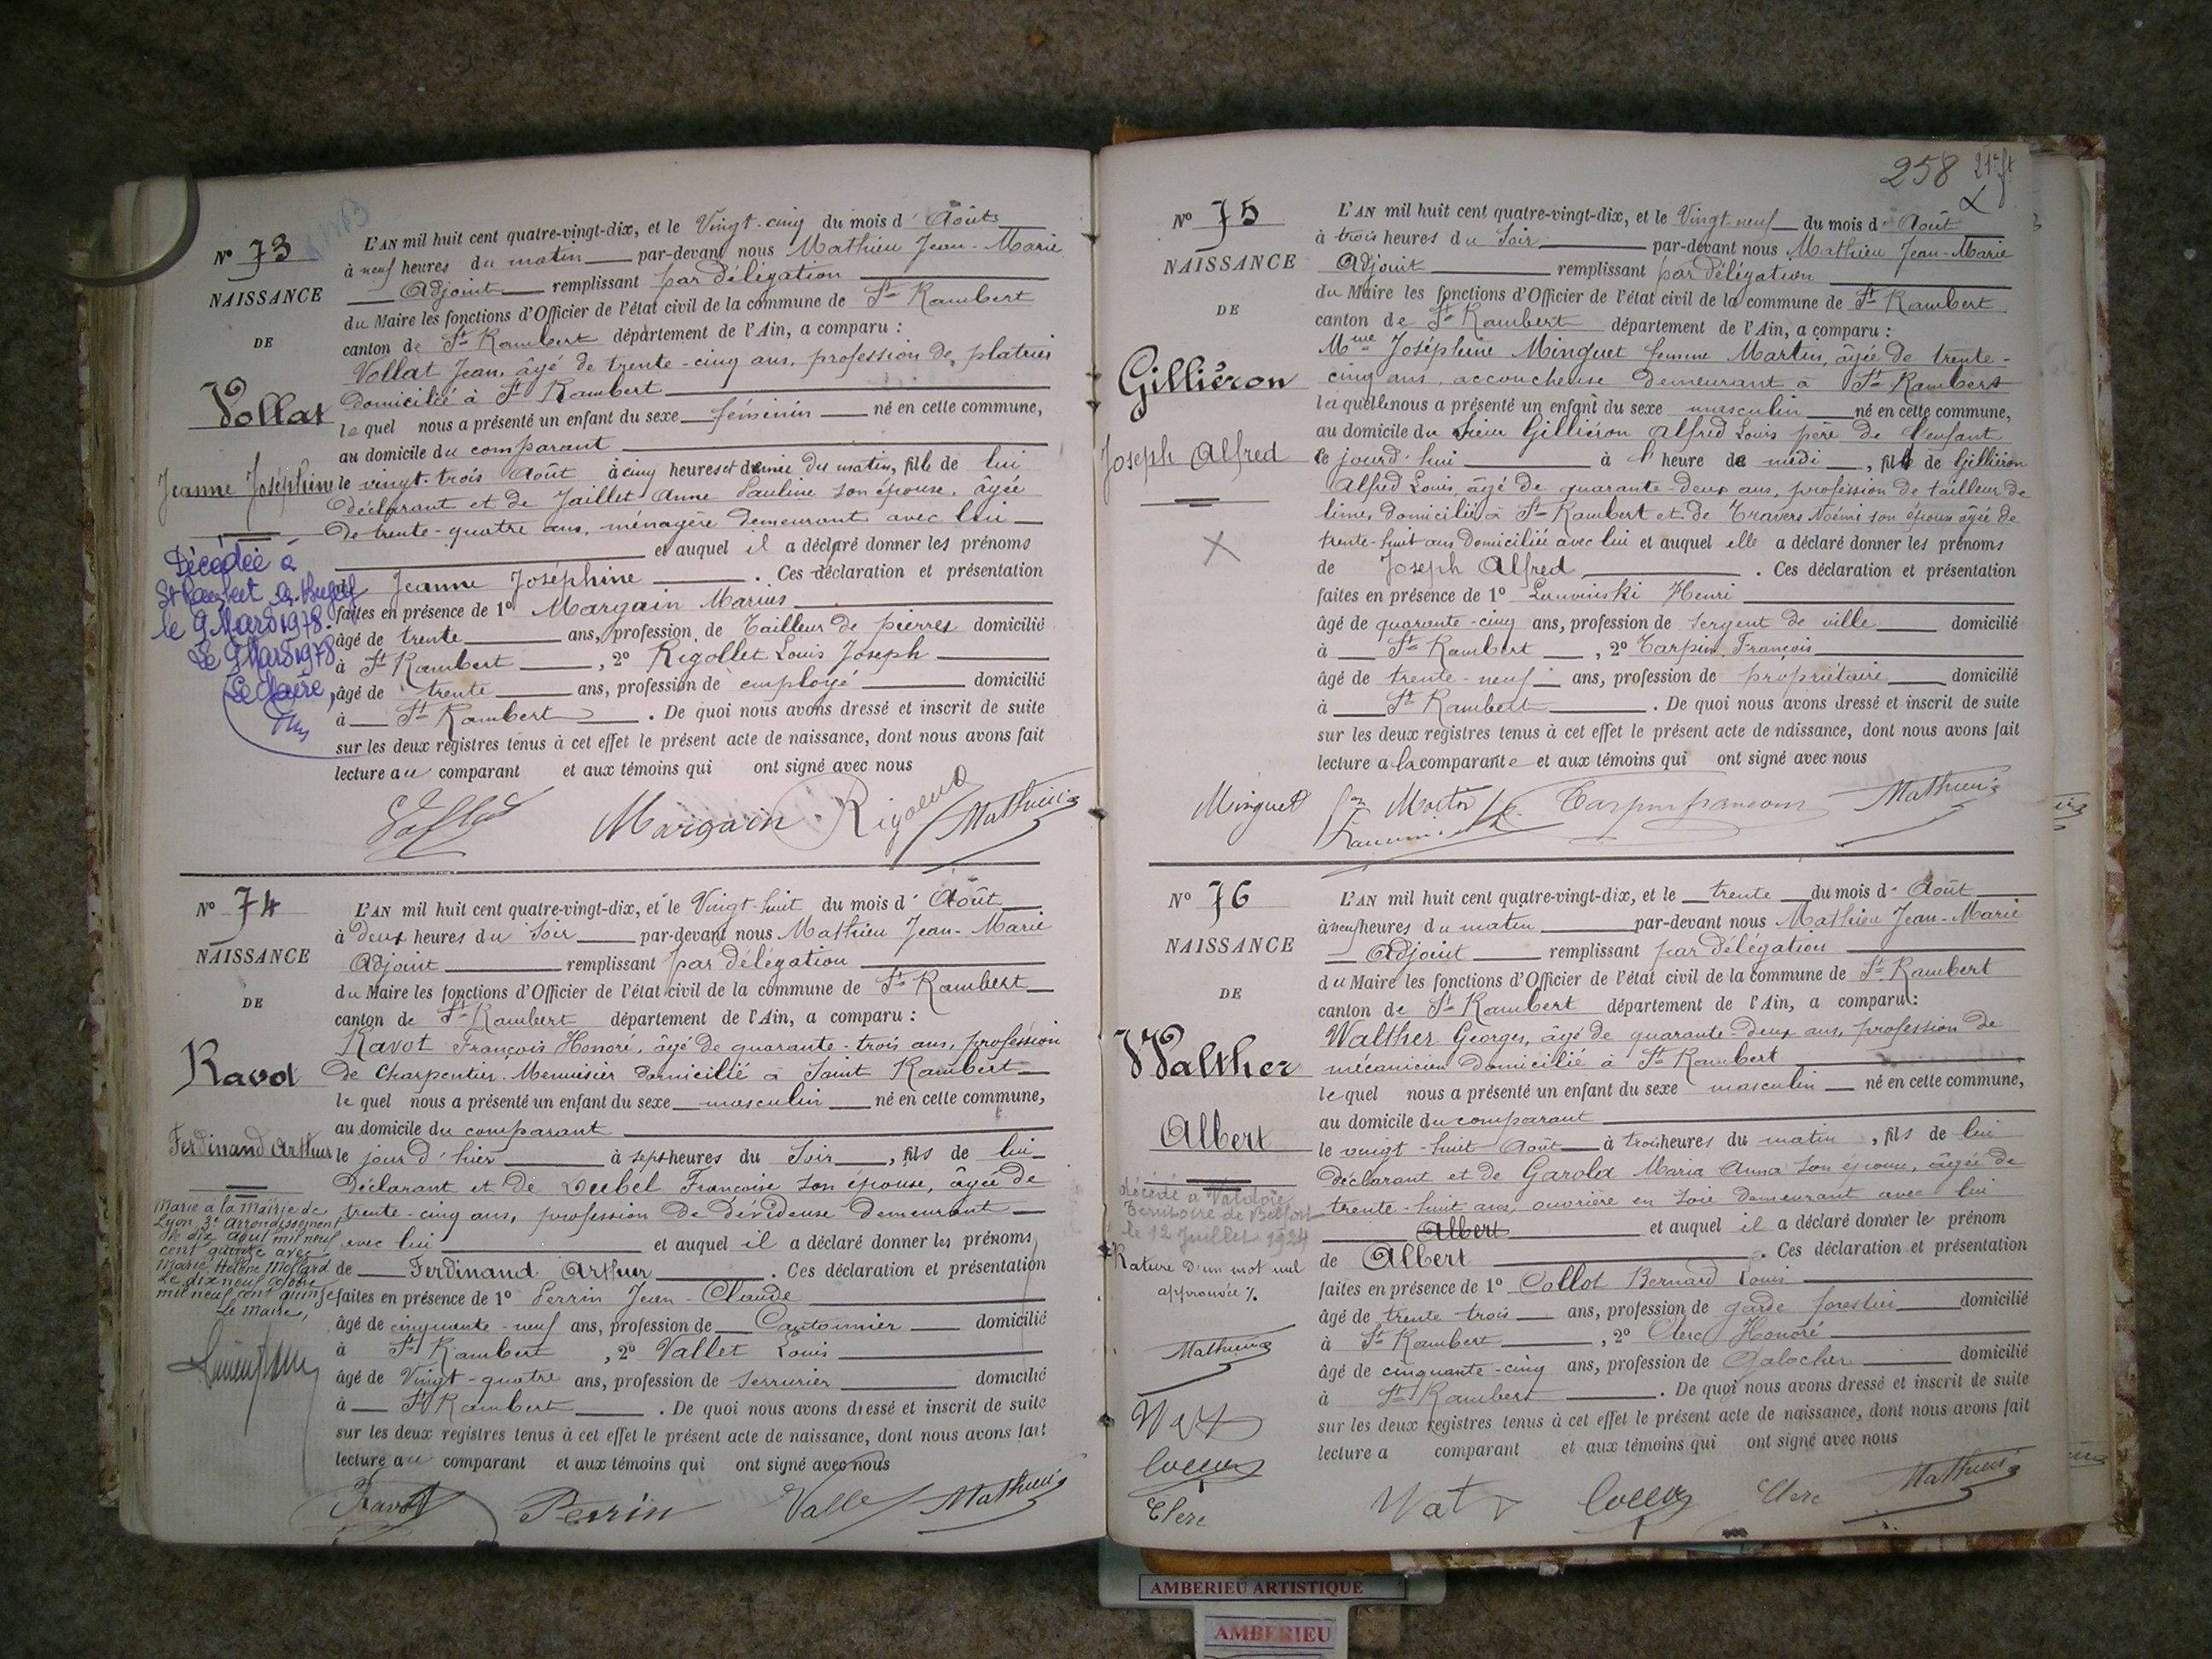 N° 73
NAISSANCE
DE
Vollat
Jeanne Joséphine
Décédée à
le 9 Mars 1978.
Le 9 Mars 1978
Le Maire,
L'AN mil huit cent quatre-vingt-dix, et le Vingt-cinq du mois d'Août
à neuf heures du matin par-devant nous Mathieu Jean-Marie
Adjoint remplissant par délégation
du Maire les fonctions d'Officier de l'état civil de la commune de St Rambert
canton de St Rambert département de l'Ain, a comparu :
Vollat Jean, âgé de trente-cinq ans, profession de platrier
domicilié à St Rambert
lequel nous a présenté un enfant du sexe féminin né en cette commune,
au domicile du comparant
le vingt-trois Août à cinq heures et demie du matin, fille de lui
déclarant et de Jaillet Anne Pauline son épouse, âgée
de trente-quatre ans, ménagère demeurant avec lui
et auquel il a déclaré donner les prénoms
de Jeanne Joséphine . Ces déclaration et présentation
faites en présence de 1° Margain Marius
âgé de trente ans, profession de Tailleur de pierres domicilié
à St Rambert , 2° Rigollet Louis Joseph
âgé de trente ans, profession de employé domicilié
à St Rambert . De quoi nous avons dressé et inscrit de suite
sur les deux registres tenus à cet effet le présent acte de naissance, dont nous avons fait
lecture au comparant et aux témoins qui ont signé avec nous
Margain Mathieu
N° 74
NAISSANCE
DE
Ravot
Ferdinand Arthur
Marié à la Mairie de
Lyon 3e arrondissement
le dix août mil neuf
cent quinze avec
Marie Hélène Mollard
Le dix neuf
mil neuf cent quinze
Le Maire,
L'AN mil huit cent quatre-vingt-dix, et le Vingt-huit du mois d'Août
à deux heures du soir par-devant nous Mathieu Jean-Marie
Adjoint remplissant par délégation
du Maire les fonctions d'Officier de l'état civil de la commune de St Rambert
canton de St Rambert département de l'Ain, a comparu :
Ravot François Honoré, âgé de quarante-trois ans, profession
de Charpentier-Menuisier domicilié à Saint Rambert
lequel nous a présenté un enfant du sexe masculin né en cette commune,
au domicile du comparant
le jour d'hier à sept heures du soir, fils de lui
déclarant et de Dubel Françoise son épouse, âgée de
trente-cinq ans, profession de dévideuse demeurant
avec lui et auquel il a déclaré donner les prénoms
de Ferdinand Arthur . Ces déclaration et présentation
faites en présence de 1° Perrin Jean-Claude
âgé de cinquante-neuf ans, profession de Cantonnier domicilié
à St Rambert , 2° Vallet Louis
âgé de Vingt-quatre ans, profession de serrurier domicilié
à St Rambert . De quoi nous avons dressé et inscrit de suite
sur les deux registres tenus à cet effet le présent acte de naissance, dont nous avons fait
lecture au comparant et aux témoins qui ont signé avec nous
Ravot Perrin Vallet Mathieu
258
N° 75
NAISSANCE
DE
Gilliéron
Joseph Alfred
L'AN mil huit cent quatre-vingt-dix, et le Vingt-neuf du mois d'Août
à trois heures du soir par-devant nous Mathieu Jean-Marie
Adjoint remplissant par délégation
du Maire les fonctions d'Officier de l'état civil de la commune de St Rambert
canton de St Rambert département de l'Ain, a comparu :
Mme Joséphine Minguet femme Martin, âgée de trente-
cinq ans, accoucheuse demeurant à St Rambert
laquelle nous a présenté un enfant du sexe masculin né en cette commune,
au domicile du sieur Gilliéron Alfred Louis père de l'enfant
ce jourd'hui à l'heure de midi, fils de Gilliéron
Alfred Louis âgé de quarante-deux ans, profession de tailleur de
limes, domicilié à St Rambert et de Travers Noémi son épouse âgée de
trente-huit ans domiciliée avec lui et auquel elle a déclaré donner les prénoms
de Joseph Alfred . Ces déclaration et présentation
faites en présence de 1° Henri
âgé de quarante-cinq ans, profession de sergent de ville domicilié
à St Rambert , 2° Tarpin François
âgé de trente-neuf ans, profession de propriétaire domicilié
à St Rambert . De quoi nous avons dressé et inscrit de suite
sur les deux registres tenus à cet effet le présent acte de naissance, dont nous avons fait
lecture a la comparante et aux témoins qui ont signé avec nous
Minguet Mathieu
N° 76
NAISSANCE
DE
Walther
Albert
décédé à Valdoie
Territoire de Belfort
le 12 Juillet 1924
Rature d'un mot nul
approuvée
Mathieu
Clerc
L'AN mil huit cent quatre-vingt-dix, et le trente du mois d'Août
à neuf heures du matin par-devant nous Mathieu Jean-Marie
Adjoint remplissant par délégation
du Maire les fonctions d'Officier de l'état civil de la commune de St Rambert
canton de St Rambert département de l'Ain, a comparu :
Walther Georges, âgé de quarante-deux ans, profession de
mécanicien domicilié à St Rambert
lequel nous a présenté un enfant du sexe masculin né en cette commune,
au domicile du comparant
le vingt-huit Août à trois heures du matin, fils de lui
déclarant et de Garola Maria Anna son épouse, âgée de
trente-huit ans, ouvrière en soie demeurant avec lui
Albert et auquel il a déclaré donner le prénom
de Albert . Ces déclaration et présentation
faites en présence de 1° Collot Bernard Louis
âgé de trente-trois ans, profession de garde forestier domicilié
à St Rambert , 2° Clerc Honoré
âgé de cinquante-cinq ans, profession de Galocher domicilié
à St Rambert . De quoi nous avons dressé et inscrit de suite
sur les deux registres tenus à cet effet le présent acte de naissance, dont nous avons fait
lecture a comparant et aux témoins qui ont signé avec nous
Clerc Mathieu
AMBERIEU ARTISTIQUE
AMBERIEU